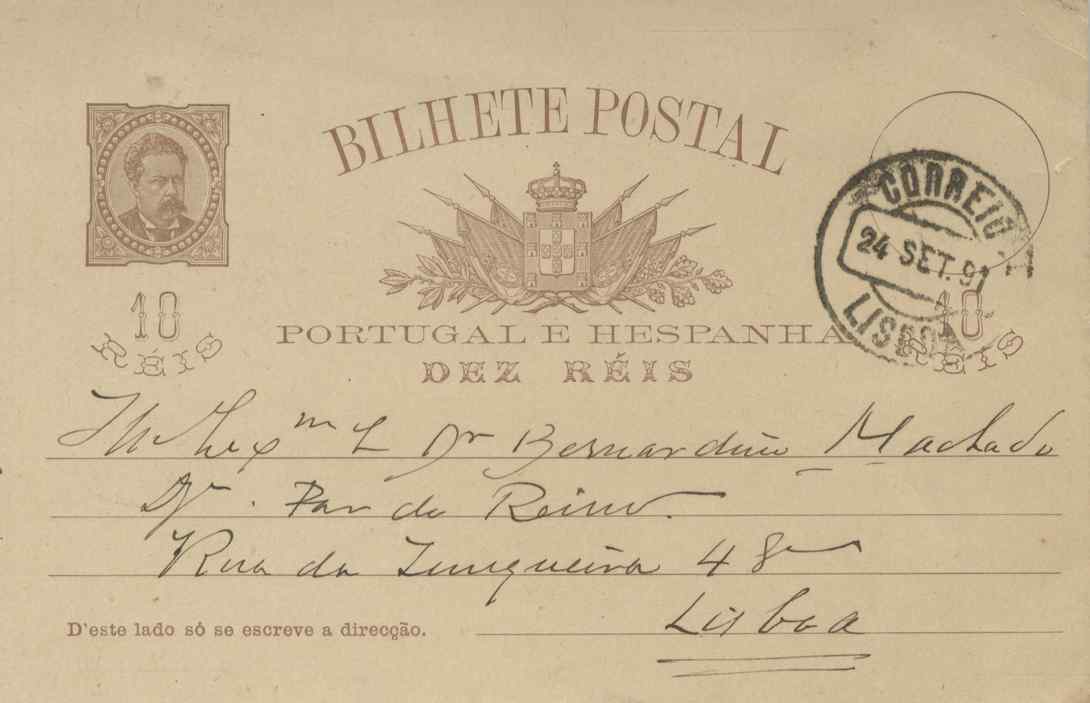 BILHETE POSTAL
10
RÉIS
PORTUGAL E HESPANHA
DEZ RÉIS
CORREIO
24 SET. 91
LISBOA
10
RÉIS
Dr Bernardino Machado
Par do Reino.
Rua da Junqueira 48
Lisboa
D'este lado só se escreve a direcção.